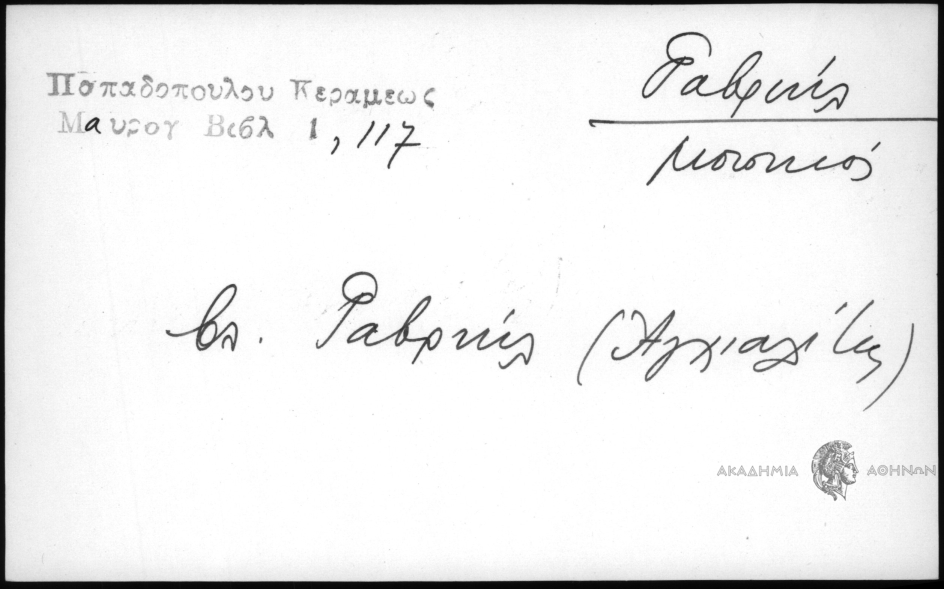 Παπαδοπουλου Κεραμεως
Μαυρογ Βιβλ 1, 117
Γαβριήλ
μουσικός
βλ. Γαβριήλ (Ἀγχιαλίτης)
ΑΚΑΔΗΜΙΑ ΑΘΗΝΩΝ